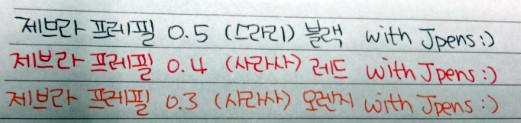 제브라 프레필 0.5 (스라리) 블랙 with Jpens:)
제브라 프레필 0.4 (사라사) 레드 with Jpens:)
제브라 프레필 0.3 (사라사) 오렌지 with Jpens:)